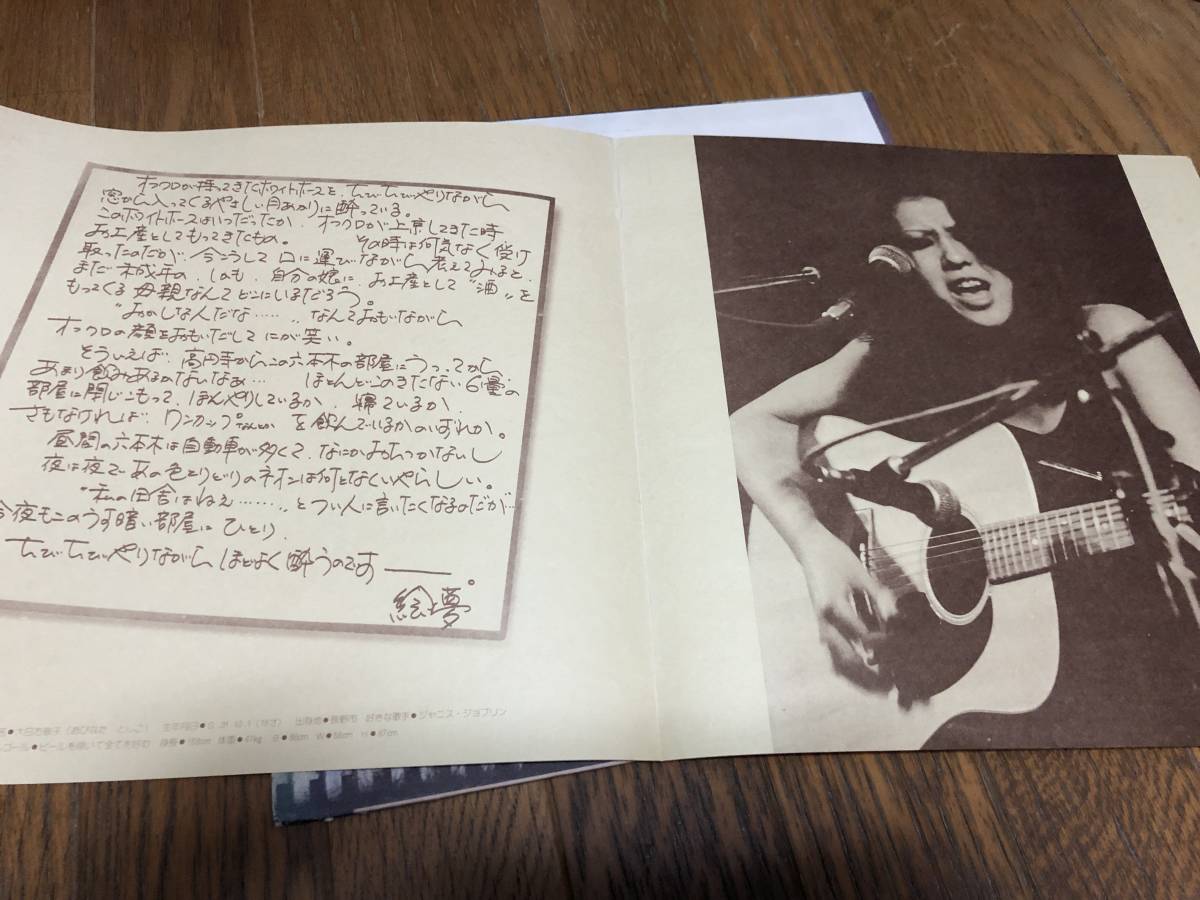 オフクロが持ってきたホワイトホースを、ちびちびやりながら
窓から入ってくるやさしい月あかりに酔っている。
このホワイトホースはいつだったか、オフクロが上京してきた時
お土産としてもってきたもの。 その時は何気なく受け
取ったのだが、今こうして口に運びながら考えてみると、
まだ未成年の、しかも、自分の娘に、お土産として“酒”を
もってくる母親なんてどこにいるだろう。
“おかしな人だな……”なんておもいながら
オフクロの顔をおもいだしてにが笑い。
そういえば、高円寺からこの六本木の部屋にうつってから
あまり飲みあるかないなぁ… ほとんどこのきたない6畳の
部屋に閉じこもって、ぼんやりしているか、寝ているか、
さもなければ、ワンカップなんとかを飲んでいるかのいずれか。
昼間の六本木は自動車が多くて、なにかおちつかないし
夜は夜であの色とりどりのネオンは何となくいやらしい。
“私の田舎はねぇ……”とつい人に言いたくなるのだが…
今夜もこのうす暗い部屋にひとり、
ちびちびやりながらほどよく酔うのです――。
絵夢
出身地●長野市 好きな歌手●ジャニス・ジョプリン
ビールを除いて全てを好む 身長● 体重●47kg